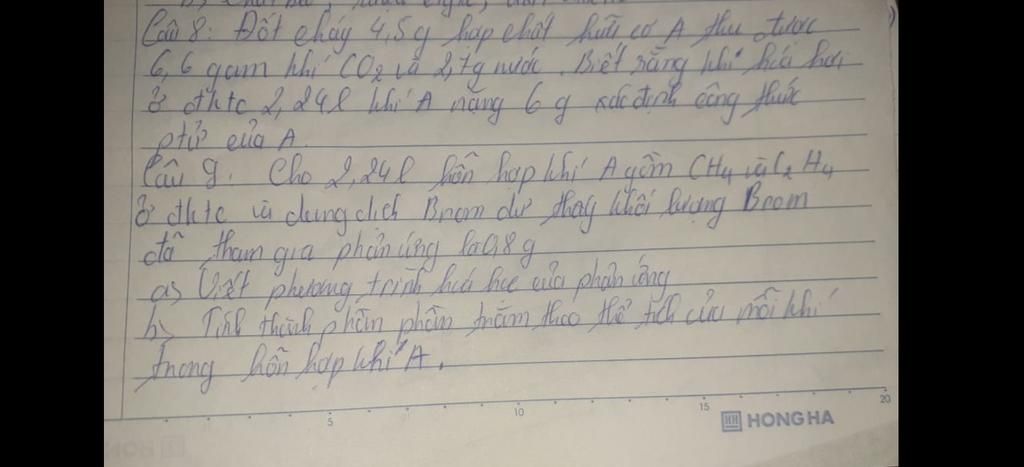 Câu 8: Đốt cháy 4,5g hợp chất hữu cơ A thu được
6,6 gam khí CO2 và 2,7g nước. Biết rằng khi hoá hơi
ở đktc 2,24l khí A nặng 6 g xác định công thức
ptử của A.
Câu 9. Cho 2,24l hỗn hợp khí A gồm CH4 và C2H4
ở đktc và dung dịch Brom dư thấy khối lượng Brom
đã tham gia phản ứng là 0,8g
a) Viết phương trình hoá học của phản ứng
b) Tính thành phần phần trăm theo thể tích của mỗi khí
trong hỗn hợp khí A.
5 10 15 20
HH HONG HA